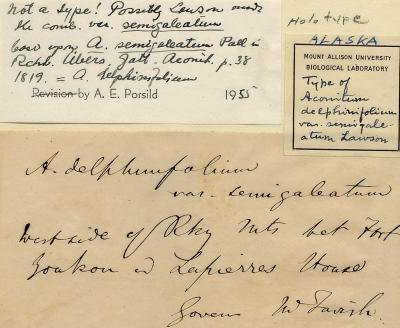 Not a type! Possibly Lawson made
the comb. var. semigaleatum
base upon A. semigaleatum Pall in
Richb. Ubers. Gatt. Aconit. p. 38
1819. = A. delphinifolium
Revision by A. E. Porsild 1955
Holotype
ALASKA
MOUNT ALLISON UNIVERSITY
BIOLOGICAL LABORATORY
Type of
Aconitum
delphinifolium
var. semigale-
atum Lawson
A. delphinifolium
var. semigaleatum
West side of Rky Mts bet Fort
Youkon & Lapierres House
Govern McTavish.